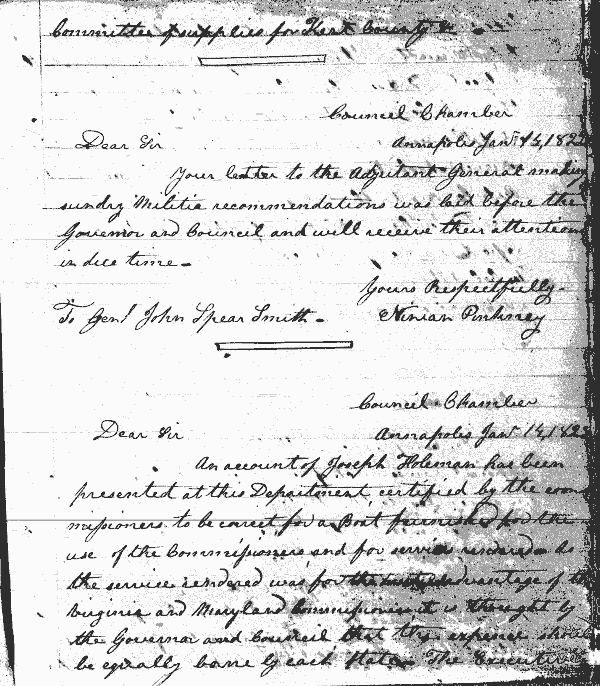 Committee of supplies for Kent County &
Council Chamber
Dear Sir Annapolis Jany 14, 182
Your letter to the Adjutant General making
sundry Militia recommendations was laid before the
Governor and Council and will receive their attention
in due time —
Yours Respectfully —
To Genl John Spear Smith — Ninian Pinkney
Council Chamber
Dear Sir Annapolis Jany 14, 1823
An account of Joseph Holeman has been
presented at this Department certified by the com
missioners to be correct for a Boat furnished for the
use of the Commissioners and for service rendered. As
the service rendered was for the advantage of the
Virginia and Maryland Commissioners it is thought by
the Governor and Council that the expence should
be equally borne by each State. The Executive